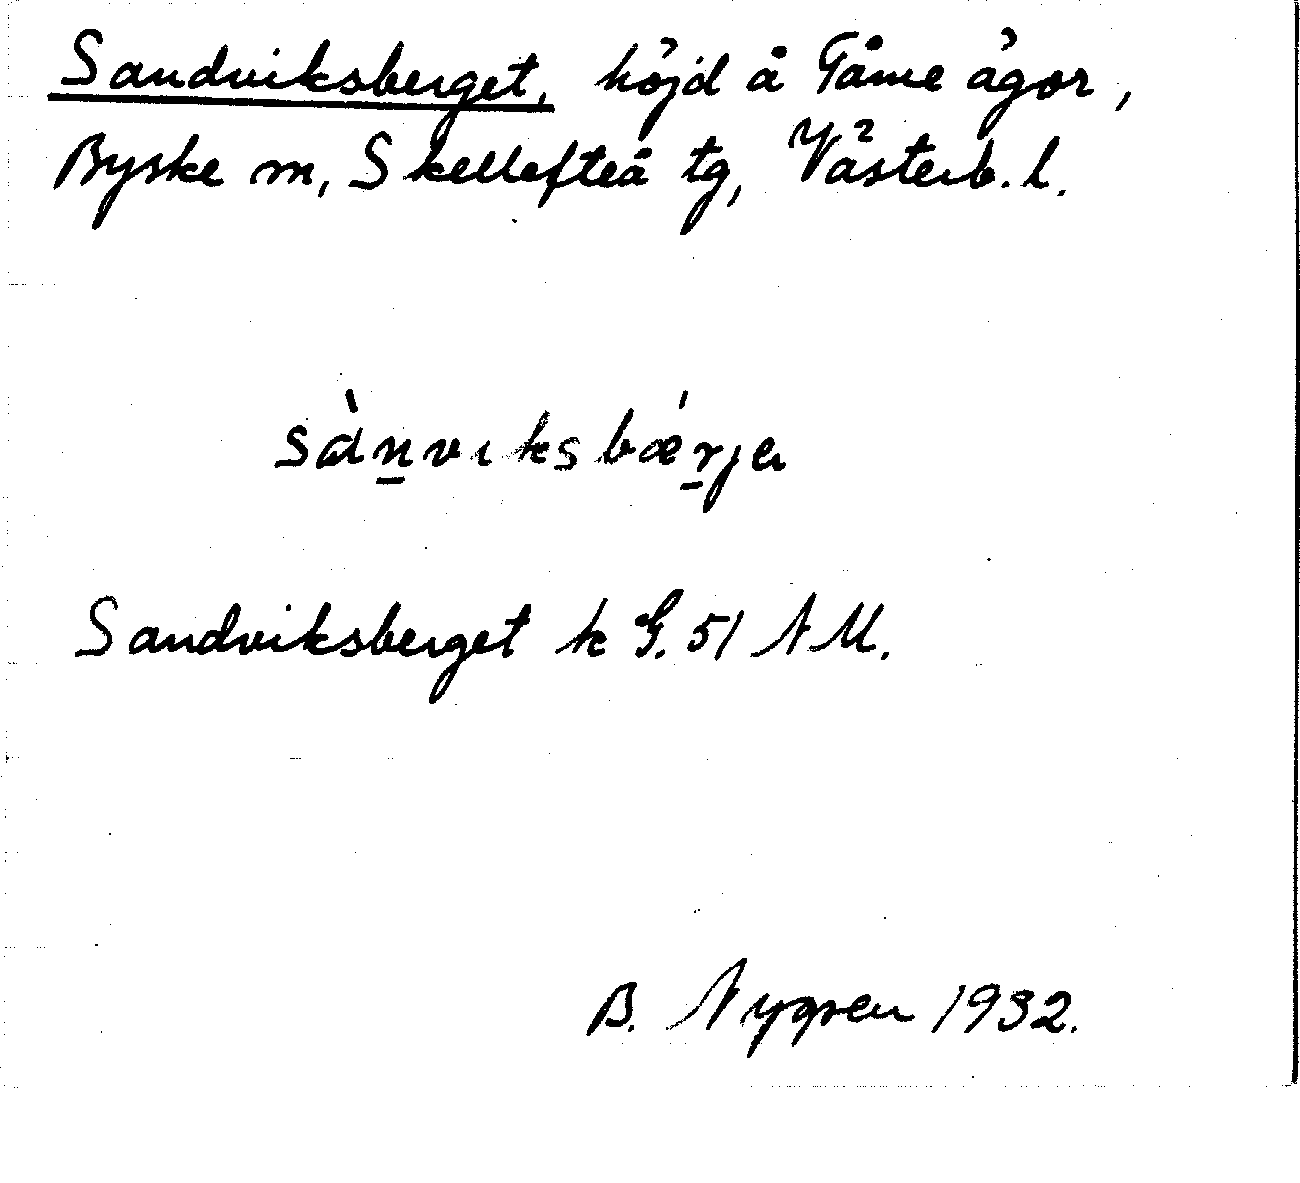 Sandviksberget, höjd å Tåme ägor,
Byske sn, Skellefteå tg, Västerb. l.
sànviksbǽrje
Sandviksberget k G. 51 NM.
B. Nygren 1932.